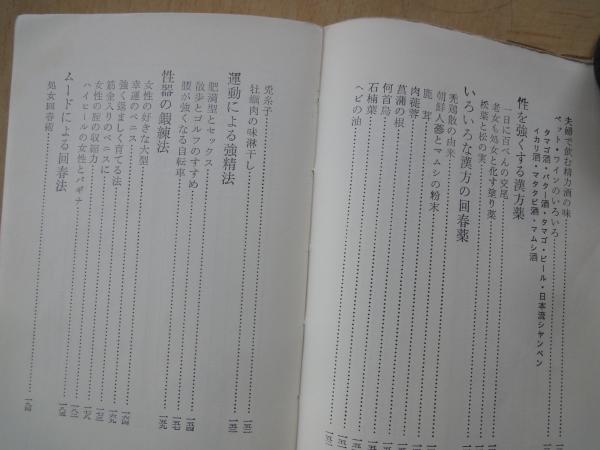 夫婦で飲む精力酒の味
ベット・ワインのいろいろ
タマゴ酒・バター酒・タマゴ・ビール・日本流シャンペン
イカリ酒・マタタビ酒・マムシ酒
性を強くする漢方薬
一日に百ぺんの交尾
老女も処女と化す塗り薬
松葉と松の実
いろいろな漢方の回春薬
禿鶏散の由来
朝鮮人蔘とマムシの粉末
鹿茸
肉蓯蓉
何首烏
菖蒲の根
石楠葉
ヘビの油
兎糸子
牡蠣肉の味淋干し
運動による強精法
肥満型とセックス
散歩とゴルフのすすめ 一五四
腰が強くなる自転車 一五七
性器の鍛練法 一五九
女性の好きな大型
幸運のペニス
強く逞ましく育てる法 一六四
筋金入りのペニスに 一六九
女性の腟の収縮力 一七三
ハイヒールの女性とバギナ 一七九
ムードによる回春法
処女回春術